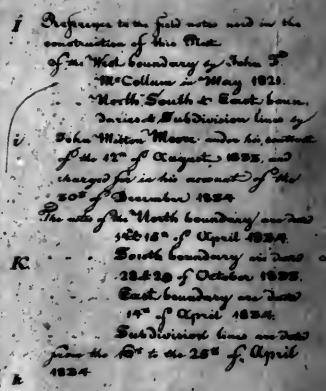 i Reference to the field notes used in the
construction of this Plat
Of the West boundary by John D
McCollum in May 1821.
North, South & East boun.
daries & Subdivision lines by
i John Milton Moore under his contract
of the 12th of August 1833, and
charged for in his account of the
30th of December 1834
The notes of the North boundary are date
14 & 15th of April 1834.
K. South boundary are date
28 & 29 of October 1833.
East boundary are date
14th of April 1834.
Subdivision lines are date
from the to the 25th of April
k 1834